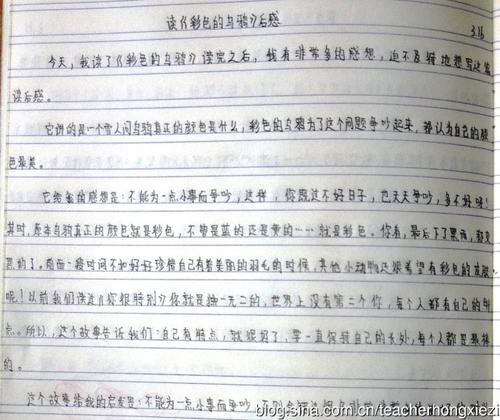 读《彩色的乌鸦》后感 3.16
今天,我读了《彩色的乌鸦》读完之后,我有非常多的感想,迫不及待地想写这篇
读后感。
它讲的是一个雪人问乌鸦真正的颜色是什么,彩色的乌鸦为了这个问题争吵起来,都认为自己的颜
色最美。
它给我的感想是:不能为一点小事而争吵,这样,你既过不好日子,也天天争吵,多不好呀!
其时,原来乌鸦真正的颜色就是彩色,不管是蓝的还是黄的……就是彩色。你看,最后下了黑雨,都变
黑的了。而西一段时间不如好好珍惜自己有着美丽的羽毛的时候,其他小动物还很希望有彩色的衣服
呢!以前我们读过《你很特别》你就是独一无二的,世界上没有第二个你,每个人都有自己的特
点。所以,这个故事告诉我们:自己有特点,就很好了,要一直保持自己的长处,每个人都是最棒
的。
这个故事给我的启发是:不能为一点小事而争吵,
blog.sina.com.cn/teacherhongxiez